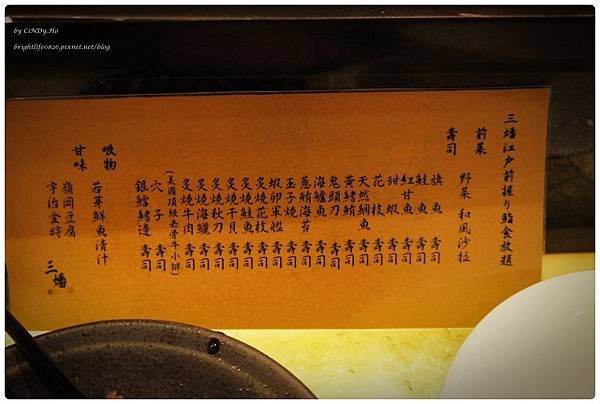 by CiNDy.Ho
brightlife0826.pixnet.net/blog
三燔江戶前握り鮨食放題
前菜
野菜 和風沙拉
壽司
旗魚 壽司
鮭魚 壽司
紅甘魚 壽司
甜蝦 壽司
花枝 壽司
天然鯛魚 壽司
黃鰭鮪 壽司
鬼頭刀 壽司
海鱺魚 壽司
蔥鮪海苔 壽司
玉子燒 壽司
蝦卵軍艦 壽司
炙燒花枝 壽司
炙燒鮭魚 壽司
炙燒干貝 壽司
炙燒秋刀 壽司
炙燒海鱺 壽司
炙燒牛肉 壽司
(美國頂級去骨牛小排)
穴子 壽司
銀鱈鰭邊 壽司
吸物
若芽鮮魚清汁
甘味
嶺岡豆腐
宇治金時
三燔